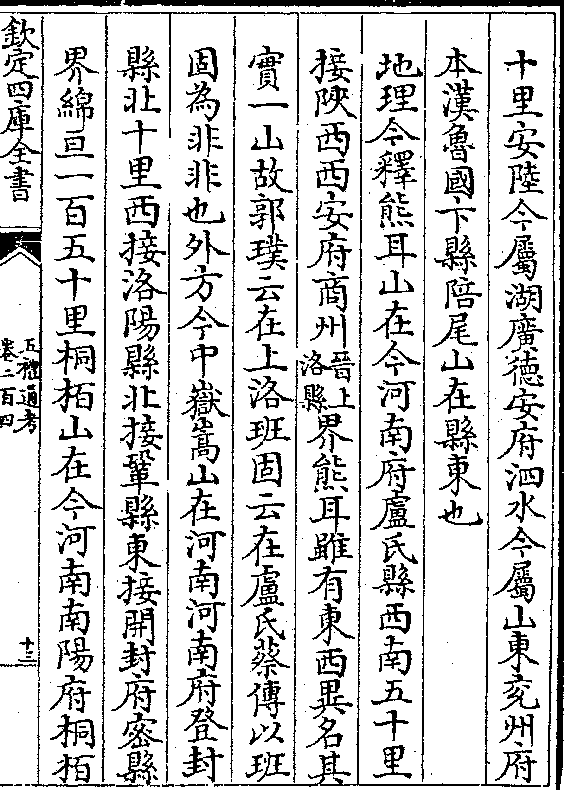 十里安陸今屬湖廣德安府泗水今屬山東兖州府
本漢魯國卞縣陪尾山在縣東也
地理今釋熊耳山在今河南府盧氏縣西南五十里
接陜西西安府商州晉上洛縣界熊耳雖有東西異名其
實一山故郭璞云在上洛班固云在盧氏蔡傳以班
固為非非也外方今中嶽嵩山在河南河南府登封
縣北十里西接洛陽縣北接鞏縣東接開封府密縣
界綿亘一百五十里桐栢山在今河南南陽府桐栢
欽定四庫全書
五禮通考
卷二百四
十三